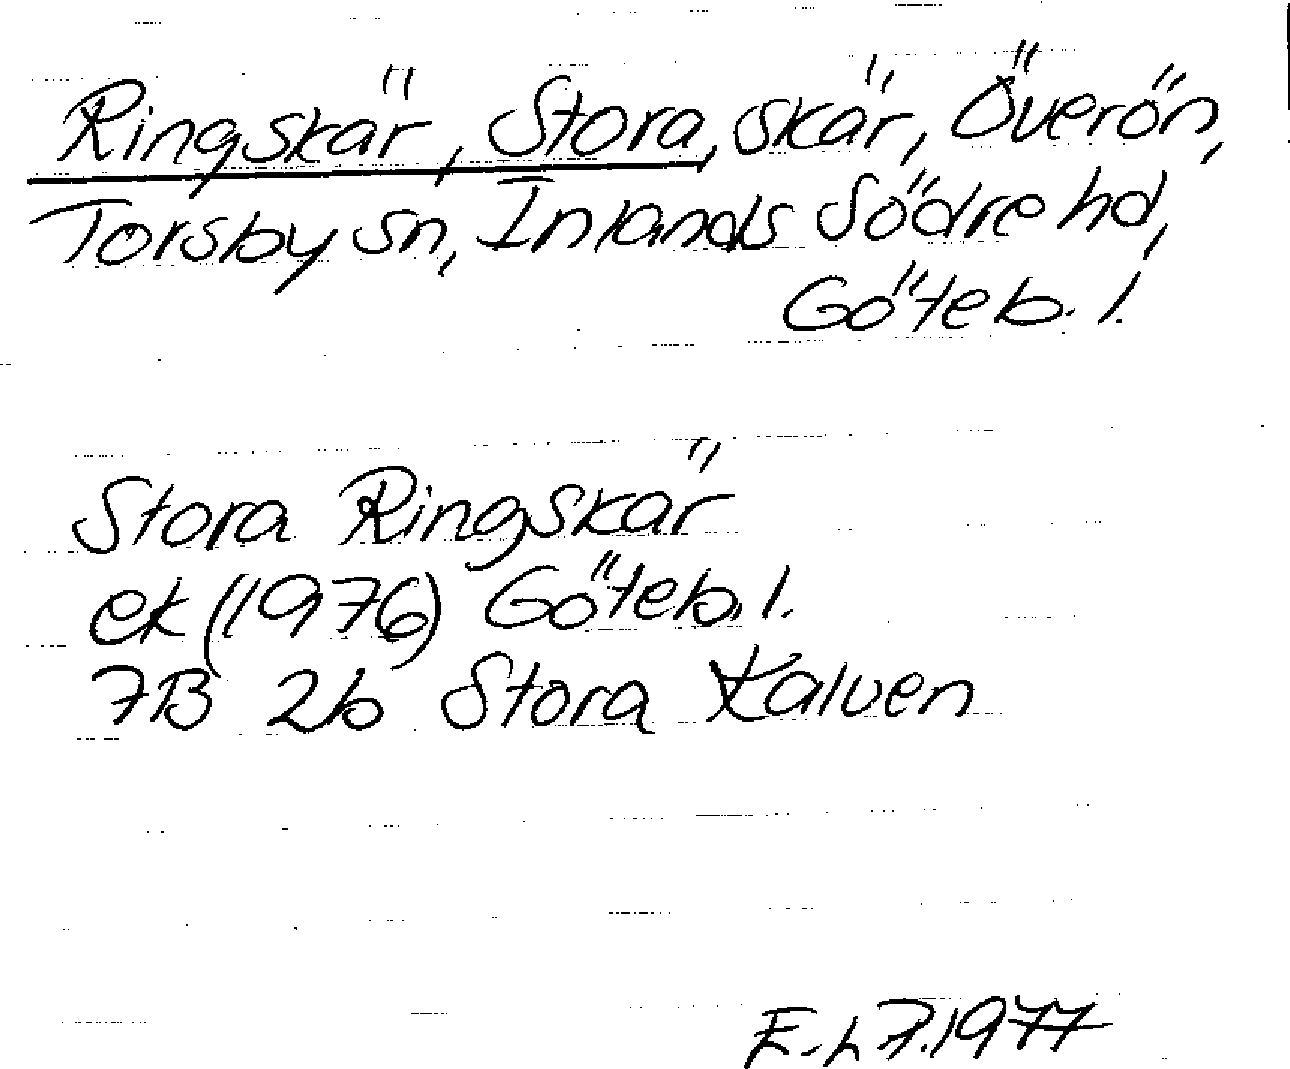 Ringskär, Stora, skär, Överön,
Torsby sn, Inlands Södre hd,
Göteb. l.
Stora Ringskär
ek (1976) Göteb. l.
7B 2b Stora Kalven
E-L P. 1977